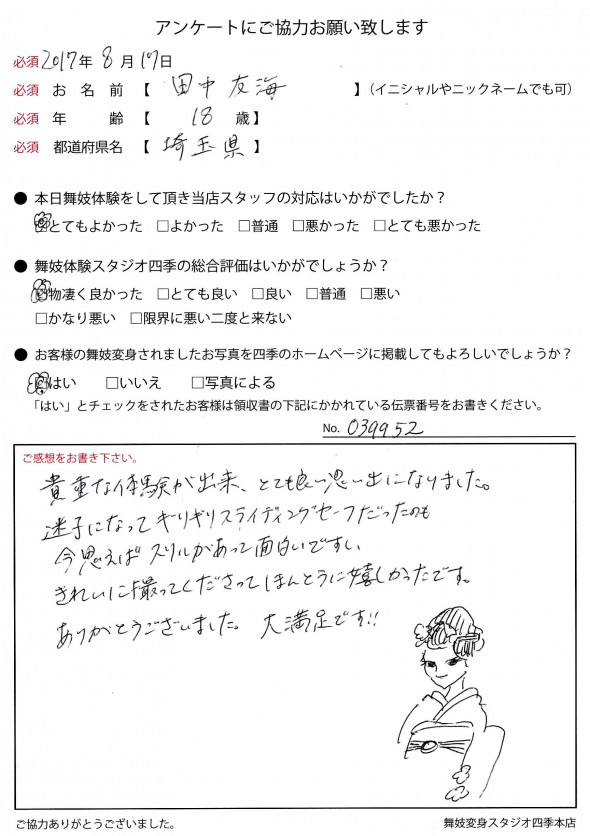 アンケートにご協力お願い致します
必須 2017年 8月 17日
必須 お 名 前 【 田中友海 】（イニシャルやニックネームでも可）
必須 年 齢 【 18 歳】
必須 都道府県名 【 埼玉県 】
● 本日舞妓体験をして頂き当店スタッフの対応はいかがでしたか？
□とてもよかった □よかった □普通 □悪かった □とても悪かった
● 舞妓体験スタジオ四季の総合評価はいかがでしょうか？
□物凄く良かった □とても良い □良い □普通 □悪い
□かなり悪い □限界に悪い二度と来ない
● お客様の舞妓変身されましたお写真を四季のホームページに掲載してもよろしいでしょうか？
□はい □いいえ □写真による
「はい」とチェックをされたお客様は領収書の下記にかかれている伝票番号をお書きください。
No. 039952
ご感想をお書き下さい。
貴重な体験が出来、とても良い思い出になりました。
迷子になってギリギリスライディングセーフだったのも
今思えばスリルがあって面白いですし、
きれいに撮ってくださってほんとうに嬉しかったです。
ありがとうございました。 大満足です!!
ご協力ありがとうございました。
舞妓変身スタジオ四季本店